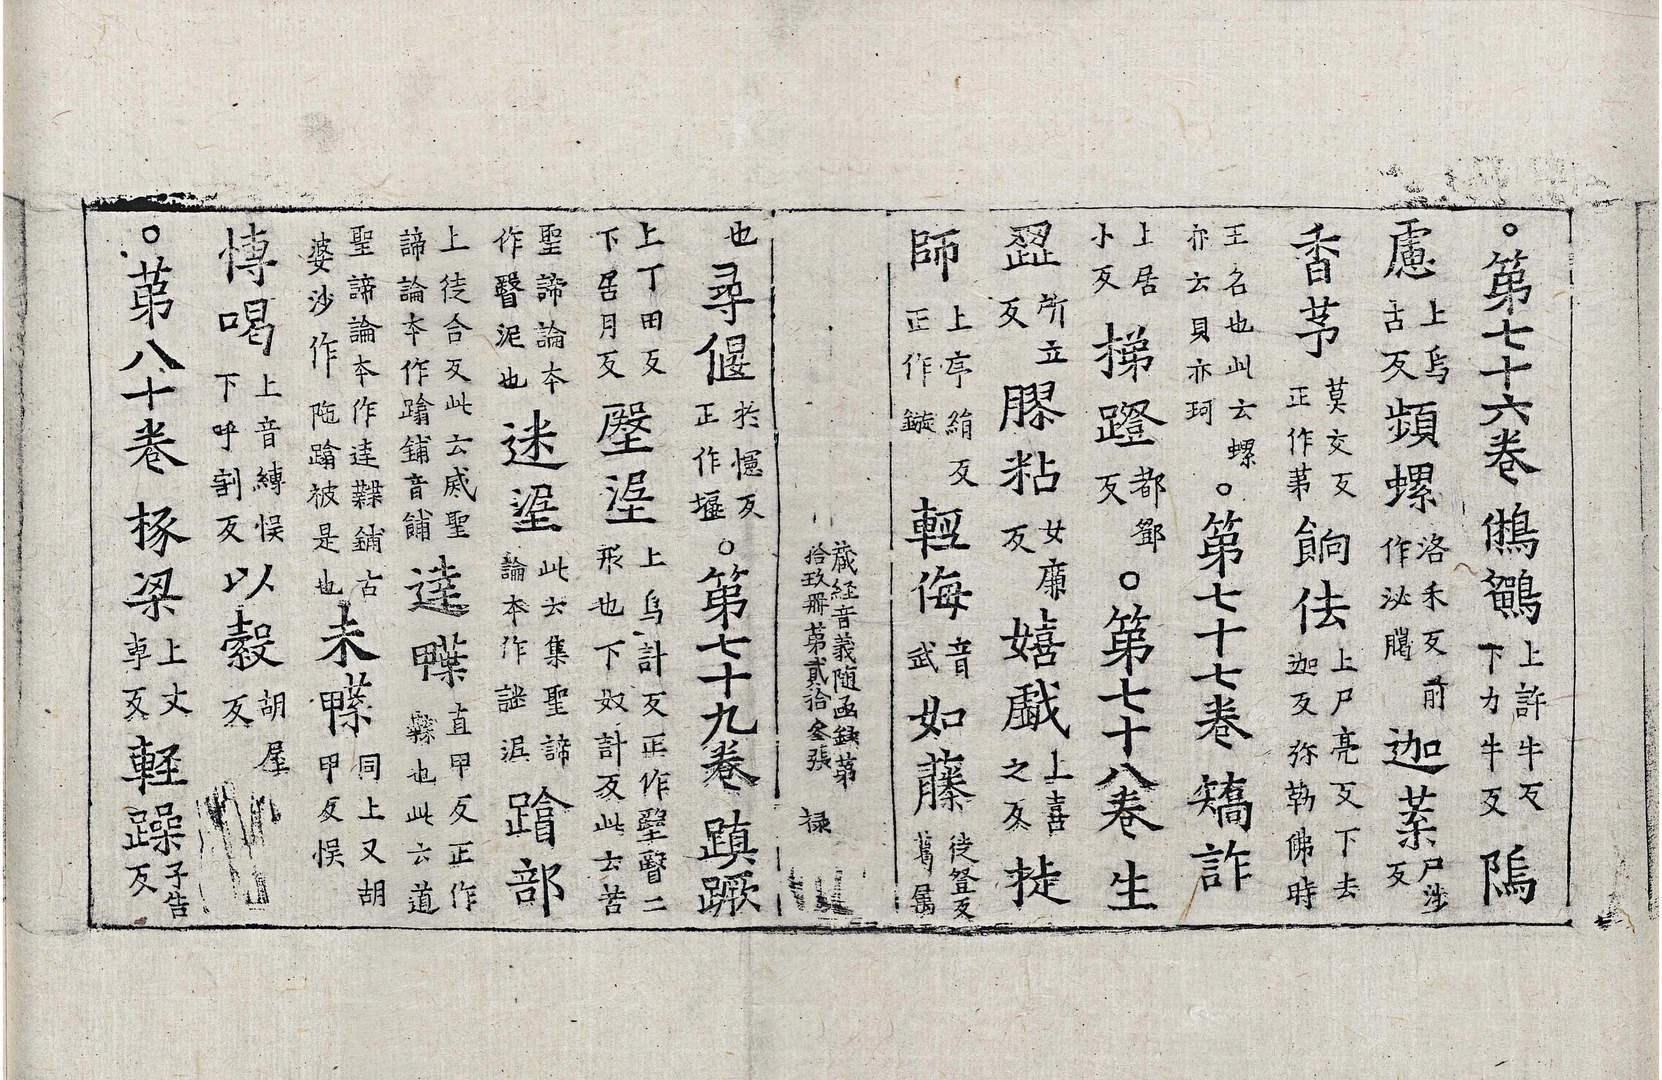 ○第七十六卷鵂鶹上許牛反下力牛反隖
慮上烏古反頻螺洛禾反前作泌𦞦迦葉尸涉反
香茅莫交反正作茅餉佉上尸亮反下去迦反弥勒佛時
王名也此云螺亦云貝亦云珂○第七十七卷矯詐
上居小反梯蹬都鄧反○第七十八卷生
澀所立反膠粘女廉反嬉戲上喜之反旋
師上序絹反正作鏇輕侮音武如藤徒登反葛属
藏経音義随函録第拾玖册第貳拾叁張 祿
也尋偃於憶反正作堰○第七十九卷蹎蹶
上丁田反下居月反瞖泥上烏計反正作瞖瞖二形也下奴計反此云苦
聖諦論本作瞖泥也迷泥此云集聖諦論本作謎泥蹹部
上徒合反此云烕聖諦論本作蹹鋪音鋪達𩎖直甲反正作𩎖也此云道
聖諦論本作達𩎖鋪古婆沙作陁蹹被是也未𩎖同上又胡甲反悮
愽喝上音縛悮下呼割反以㲄胡屋反
○第八十卷椓梁上丈專反軽躁子告反